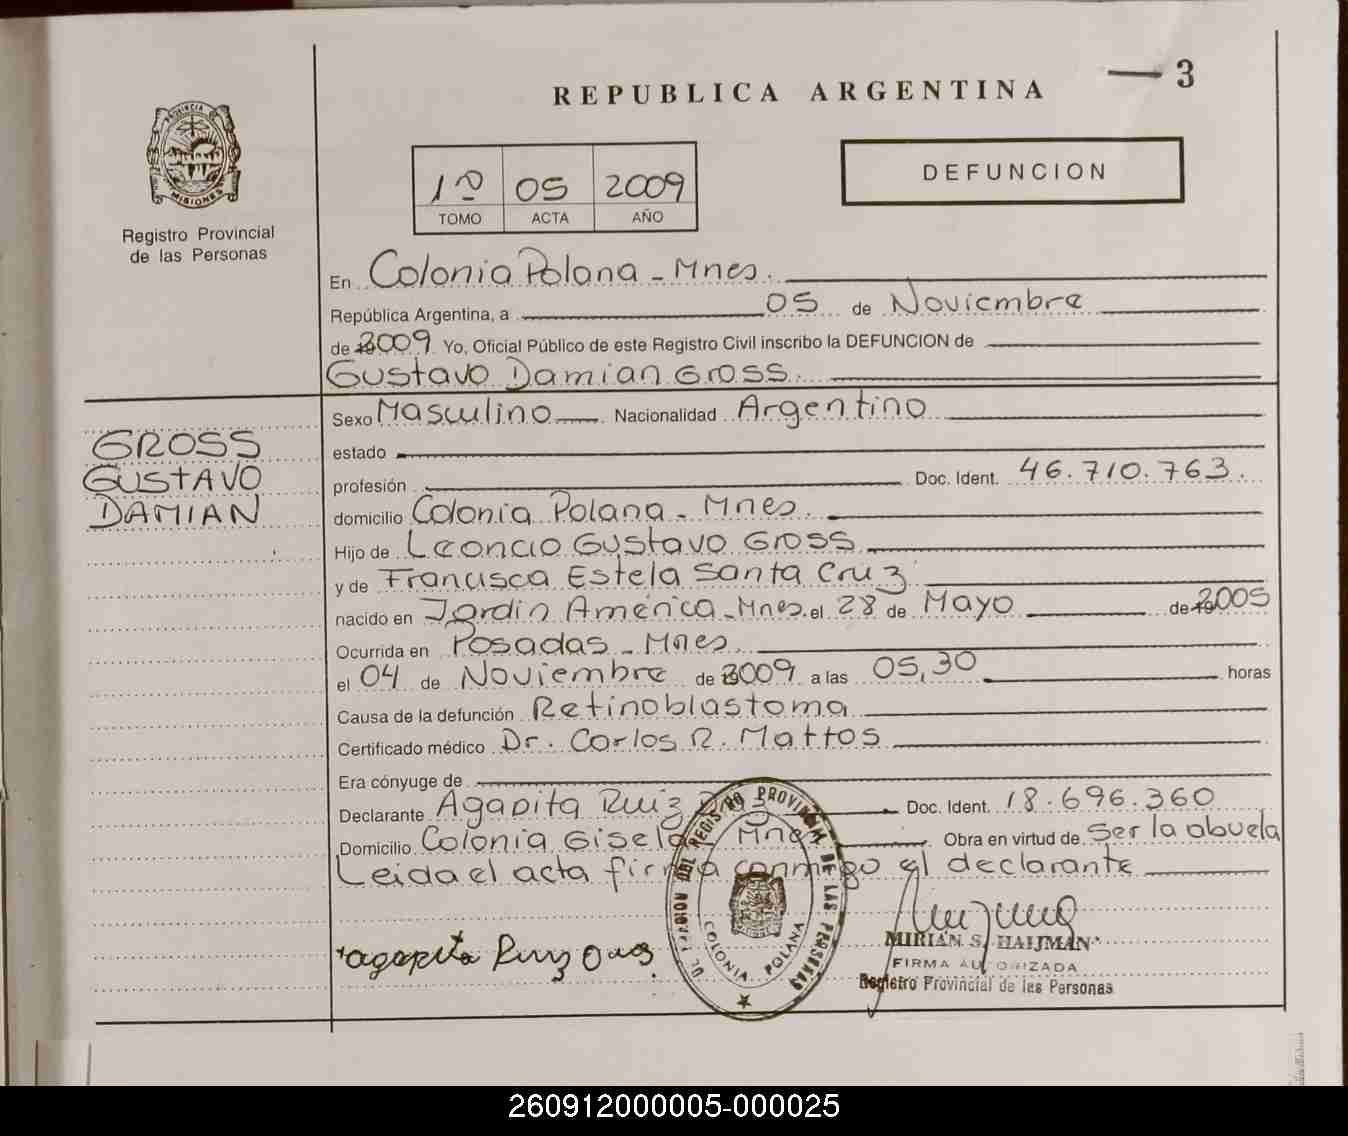 — 3
REPUBLICA ARGENTINA
PROVINCIA
MISIONES
Registro Provincial
de las Personas
1º 05 2009
TOMO ACTA AÑO
DEFUNCION
En Colonia Polana - Mnes.
República Argentina, a 05 de Noviembre
de 2009 Yo, Oficial Público de este Registro Civil inscribo la DEFUNCION de
Gustavo Damian Gross.
GROSS
GUSTAVO
DAMIAN
Sexo Masculino Nacionalidad Argentino
estado
profesión Doc. Ident. 46.710.763.
domicilio Colonia Polana - Mnes.
Hijo de Leoncio Gustavo Gross
y de Francisca Estela Santa Cruz
nacido en Jardin América - Mnes. el 28 de Mayo de 2005
Ocurrida en Posadas - Mnes.
el 04 de Noviembre de 2009 a las 05,30 horas
Causa de la defunción Retinoblastoma
Certificado médico Dr. Carlos R. Mattos
Era cónyuge de
Declarante Agapita Ruiz Doc. Ident. 18.696.360
Domicilio Colonia Gisela, Mnes Obra en virtud de ser la abuela
Leida el acta firma conmigo el declarante
agapita Ruiz
REGISTRO PROVINCIAL DE LAS PERSONAS
COLONIA POLANA
MIRIAN S. HAIJMAN
FIRMA AUTORIZADA
Registro Provincial de las Personas
260912000005-000025